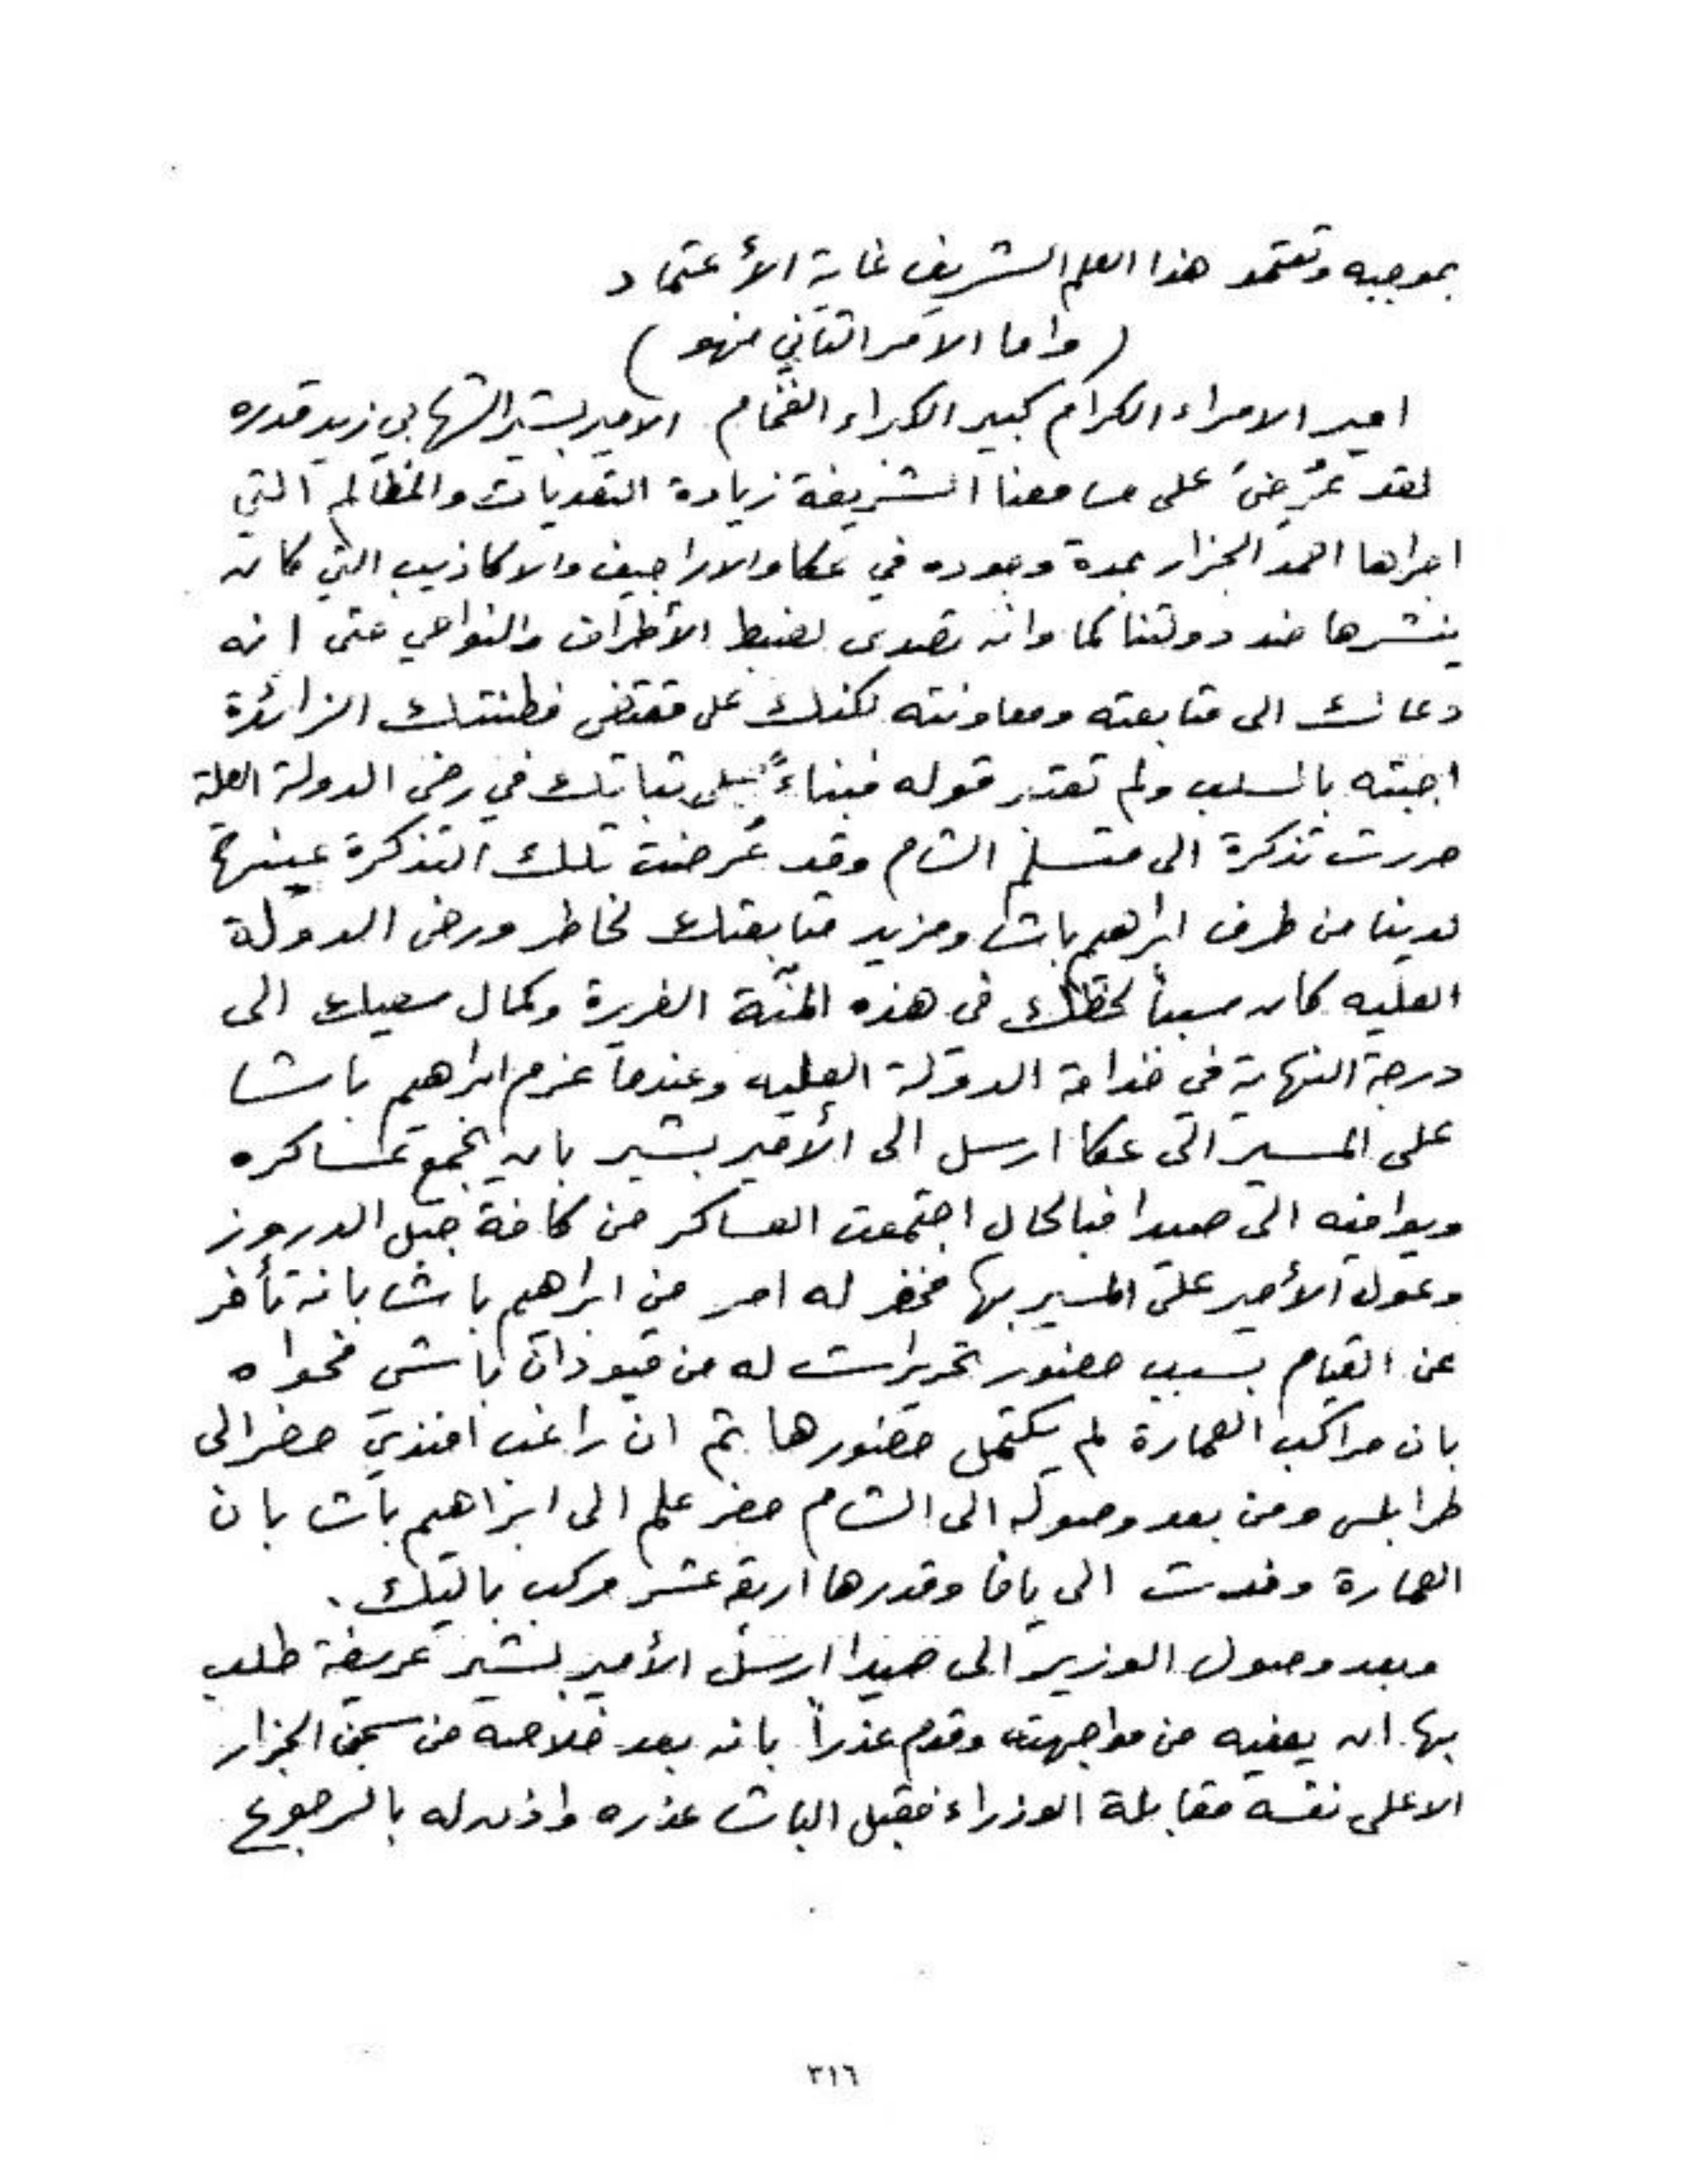 بموجبه وتعتمد هذا العلم الشريف غاية الأعتماد
(واما الامر الثاني فهو)
امير الامراء الكرام كبير الكبراء الفخام الامير بشير الشهابي زيد قدره
لقد عُرِضَ على مسامعنا الشريفة زيادة التعديات والمظالم التي
اجراها احمد الجزار بمدة وجوده في عكا والاراجيف والاكاذيب التي كان
ينشرها ضد دولتنا كما وانه تصدى لضبط الأطراف والنواحي حتى انه
دعاك الى متابعته ومعاونته لكنك على مقتضى فطنتك الزائدة
اجبته بالسلب ولم تعتبر قوله فبناءً على ثباتك في رضى الدولة العلية
حررت تذكرة الى متسلم الشام وقد عُرضت تلك التذكرة عينها
لدينا من طرف ابراهيم باشا ومزيد متابعتك لخاطر ورضى الدولة
العليه كان سبباً لحظك في هذه المنّة الغزيرة وكمال سعيك الى
درجة النهاية في خدامة الدولة العليه وعندما عزم ابراهيم باشا
على المسير الى عكا ارسل الى الأمير بشير بان يجمع عساكره
ويوافيه الى صيدا فبالحال اجتمعت العساكر من كافة جبل الدروز
وعول الأمير على المسير بها فحضر له امر من ابراهيم باشا بانه تأخر
عن القيام بسبب حضور تحريرات له من قبودان باشي فحواه
بان مراكب العمارة لم يكتمل حضورها ثم ان راغب افندي حضر الى
طرابلس ومن بعد وصوله الى الشام حضر علم الى ابراهيم باشا بان
العمارة وفدت الى يافا وقدرها اربعة عشر مركب باليك.
وبعد وصول الوزير الى صيدا ارسل الأمير بشير عريضة طلب
بها ان يعفيه من مواجهته وقدم عذراً بانه بعد خلاصه من سجن الجزار
الا على نفسه مقابلة الوزراء فقبل الباشا عذره واذن له بالرجوع
٣١٦